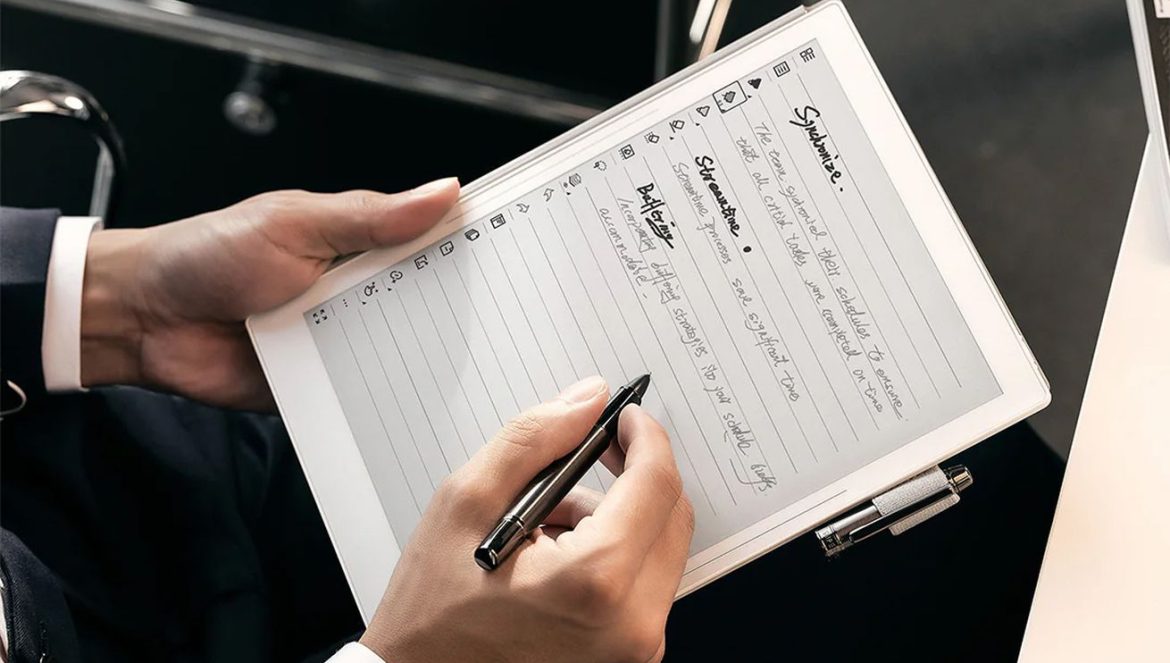 Synchronize.
The team synchronized their schedules to ensure
that all critical tasks were completed on time
Streamtime.
Streamtime processes save significant time
Buffering
Incorporating buffering strategies into your schedule helps
accommodate.